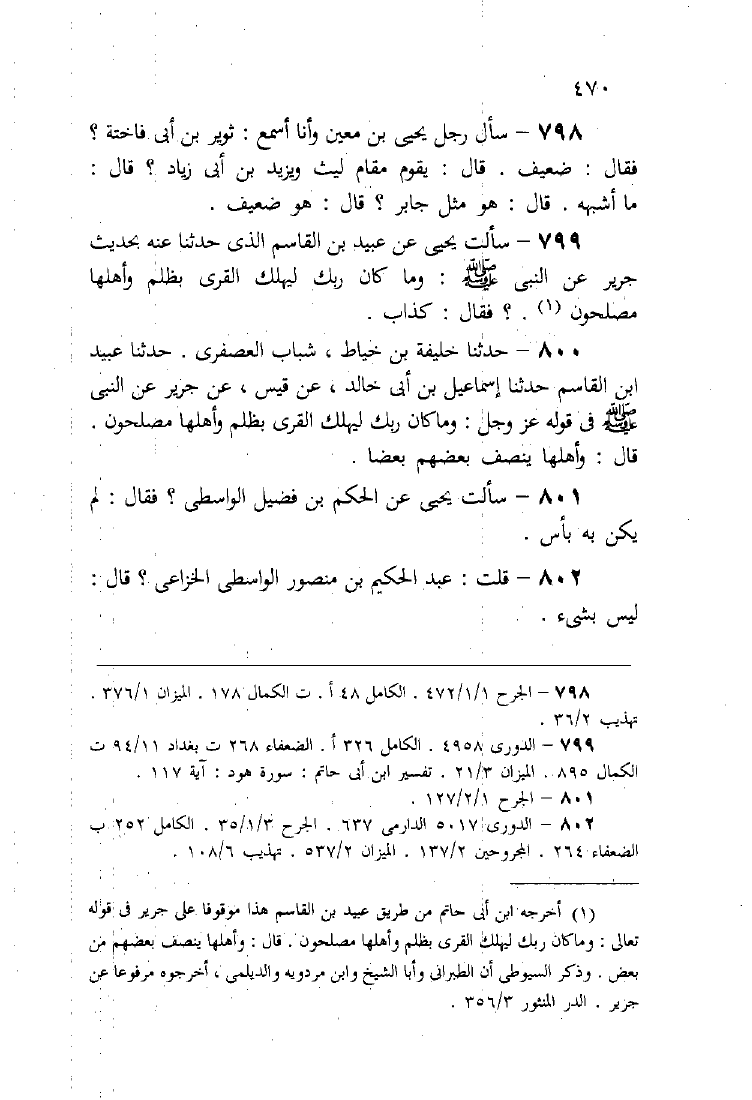 ٤٧٠
٧٩٨ – سأل رجل يحيى بن معين وأنا أسمع : ثوير بن أبى فاختة ؟
فقال : ضعيف . قال : يقوم مقام ليث ويزيد بن أبى زياد ؟ قال :
ما أشبهه . قال : هو مثل جابر ؟ قال : هو ضعيف .
٧٩٩ – سألت يحيى عن عبيد بن القاسم الذى حدثنا عنه بحديث
جرير عن النبى ﷺ : وما كان ربك ليهلك القرى بظلم وأهلها
مصلحون (١) . ؟ فقال : كذاب .
٨٠٠ – حدثنا خليفة بن خياط ، شباب العصفرى . حدثنا عبيد
ابن القاسم حدثنا إسماعيل بن أبى خالد ، عن قيس ، عن جرير عن النبى
ﷺ فى قوله عز وجل : وماكان ربك ليهلك القرى بظلم وأهلها مصلحون .
قال : وأهلها ينصف بعضهم بعضا .
٨٠١ – سألت يحيى عن الحكم بن فضيل الواسطى ؟ فقال : لم
يكن به بأس .
٨٠٢ – قلت : عبد الحكيم بن منصور الواسطى الخزاعى ؟ قال :
ليس بشىء .
٧٩٨ – الجرح ٤٧٢/١/١ . الكامل ٤٨ أ . ت الكمال ١٧٨ . الميزان ٣٧٦/١ .
تهذيب ٣٦/٢ .
٧٩٩ – الدورى ٤٩٥٨ . الكامل ٣٢٦ أ . الضعفاء ٢٦٨ ت بغداد ٩٤/١١ ت
الكمال ٨٩٥ . الميزان ٢١/٣ . تفسير ابن أبى حاتم : سورة هود : آية ١١٧ .
٨٠١ – الجرح ١٢٧/٢/١ .
٨٠٢ – الدورى ٥٠١٧ الدارمى ٦٣٧ . الجرح ٣٥/١/٣ . الكامل ٢٥٢ ب
الضعفاء ٢٦٤ . المجروحين ١٣٧/٢ . الميزان ٥٣٧/٢ . تهذيب ١٠٨/٦ .
(١) أخرجه ابن أبى حاتم من طريق عبيد بن القاسم هذا موقوفا على جرير فى قوله
تعالى : وماكان ربك ليهلك القرى بظلم وأهلها مصلحون . قال : وأهلها ينصف بعضهم من
بعض . وذكر السيوطى أن الطبرانى وأبا الشيخ وابن مردويه والديلمى ، أخرجوه مرفوعا عن
جرير . الدر المنثور ٣٥٦/٣ .